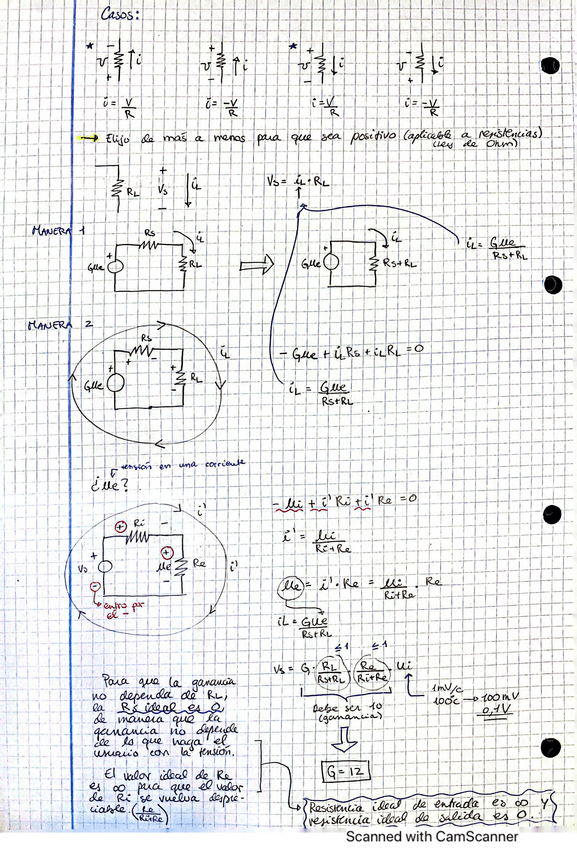 Casos:
* - v + i
+ v - i
* + v - i
- v + i
i = V/R
i = -V/R
i = V/R
i = -V/R
→ Elijo de más a menos para que sea positivo (aplicable a resistencias)
(ley de Ohm)
RL + Vs - iL
Vs = iL · RL
MANERA 1
Rs iL
+ GUe RL
⇒
+ GUe iL Rs+RL
iL = GUe/(Rs+RL)
MANERA 2
Rs iL
+ GUe + - + RL -
- GUe + iL Rs + iL RL = 0
iL = GUe/(Rs+RL)
tensión en una corriente
¿Ue?
+ Ri - i'
+ vs + Ue Re - i'
-
entro por
el -
- Ui + i' Ri + i' Re = 0
i' = Ui/(Ri+Re)
Ue = i' · Re = Ui/(Ri+Re) · Re
iL = GUe/(Rs+RL)
≤1 ≤1
vs = G · RL/(Rs+RL) · Re/(Ri+Re) · Ui
Debe ser 10
(ganancia)
1mV/ºC
100ºC → 100mV
0,1V
G = 12
Para que la ganancia
no dependa de RL,
la Ri ideal es 0
de manera que la
ganancia no depende
de lo que haga el
usuario con la tensión.
El valor ideal de Re
es ∞ para que el valor
de Ri se vuelva despre-
ciable (Re/(Ri+Re))
Resistencia ideal de entrada es ∞ y
resistencia ideal de salida es 0.
Scanned with CamScanner